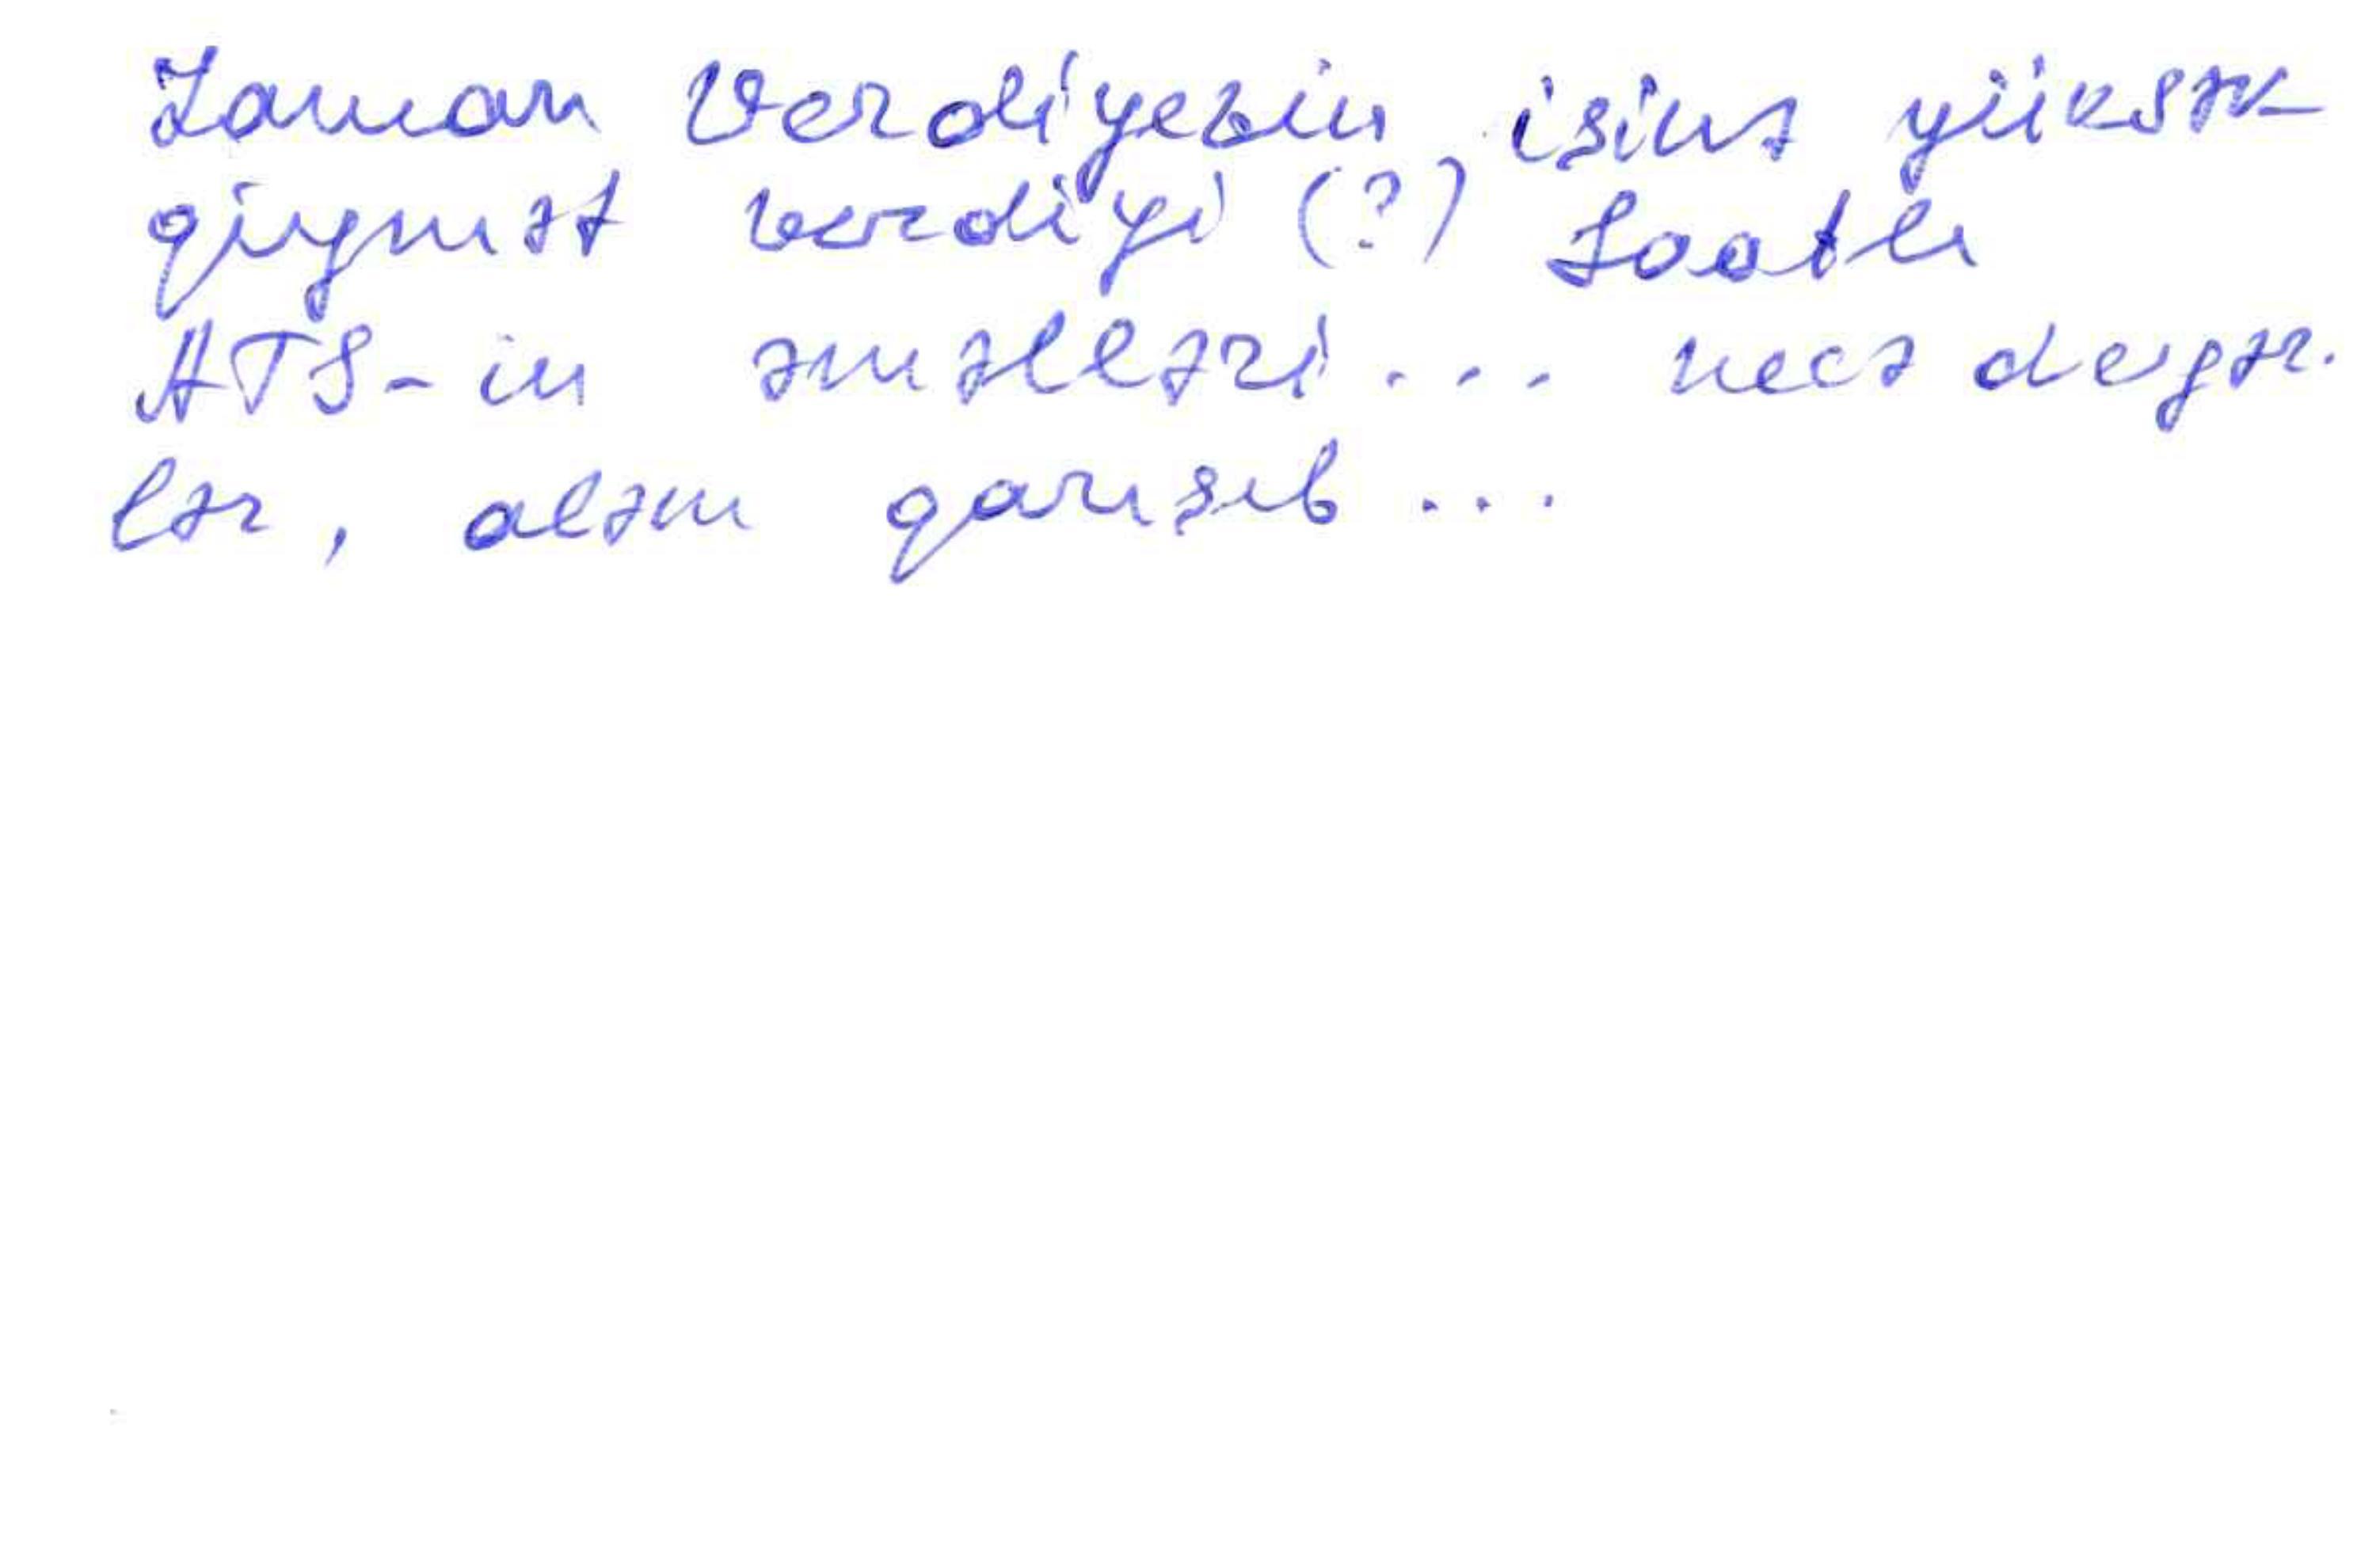 Zaman Verdiyevin işinə yüksək
qiymət verdiyi (?) Saatlı
ATS-in əməlləri... necə deyər.
lər, aləm qarışıb...